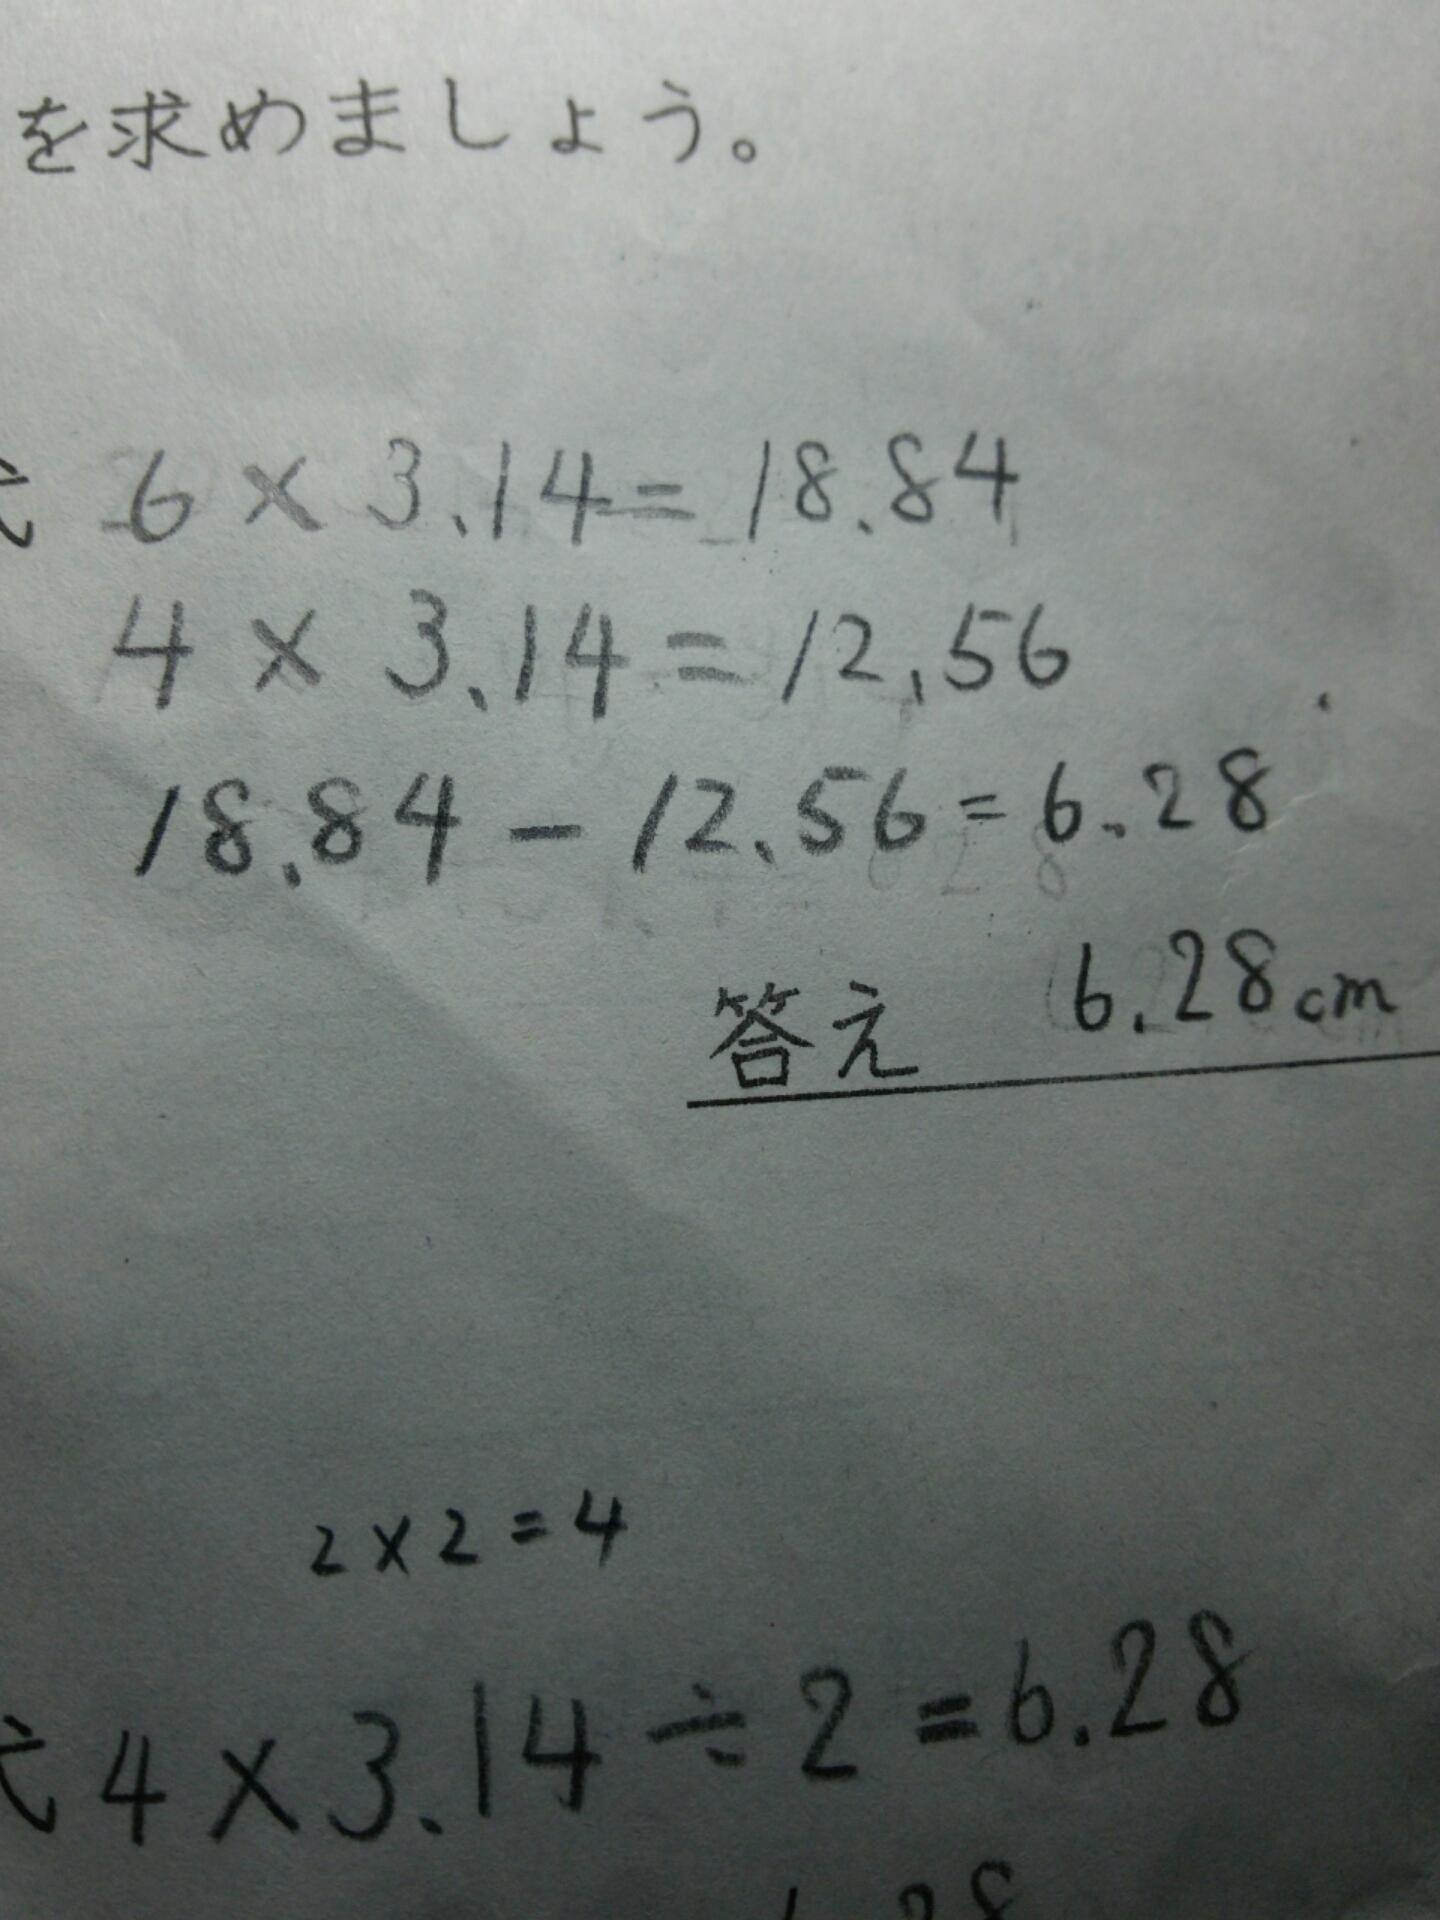 を求めましょう。
式 6 × 3.14 = 18.84
4 × 3.14 = 12.56
18.84 - 12.56 = 6.28
答え 6.28cm
2×2=4
式 4×3.14÷2=6.28
6.28